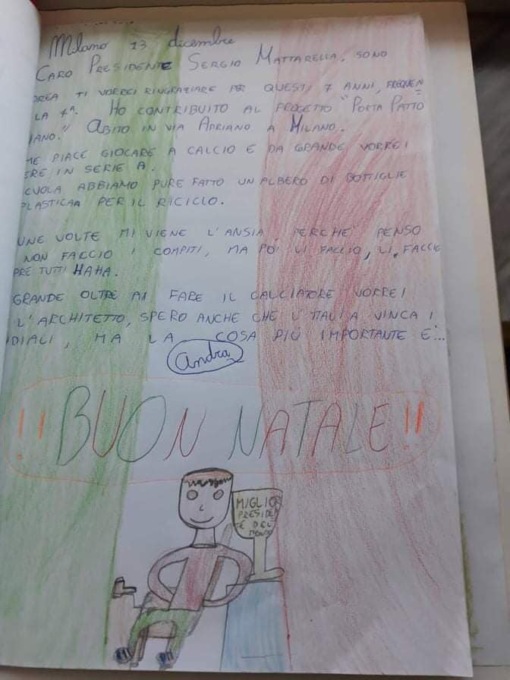 Milano 13 dicembre
CARO PRESIDENTE SERGIO MATTARELLA, SONO
DREA TI VORREI RINGRAZIARE PER QUESTI 7 ANNI, FREQUEN
LA 4ª. HO CONTRIBUITO AL PROGETTO "PORTA PATTO
IANO." ABITO IN VIA ADRIANO A MILANO.
ME PIACE GIOCARE A CALCIO E DA GRANDE VORREI
ERE IN SERIE A.
CUOLA ABBIAMO PURE FATTO UN ALBERO DI BOTTIGLIE
PLASTICA PER IL RICICLO.
UNE VOLTE MI VIENE L'ANSIA, PERCHÉ PENSO
NON FACCIO I COMPITI, MA POI LI FACCIO, LI FACCIO
PRE TUTTI HAHA.
GRANDE OLTRE A FARE IL CALCIATORE VORREI
L'ARCHITETTO, SPERO ANCHE CHE L'ITALIA VINCA I
DIALI, MA LA COSA PIÙ IMPORTANTE È...
Andrea
!! BUON NATALE !!
MIGLIOR
PRESIDEN
TE DEL
MONDO